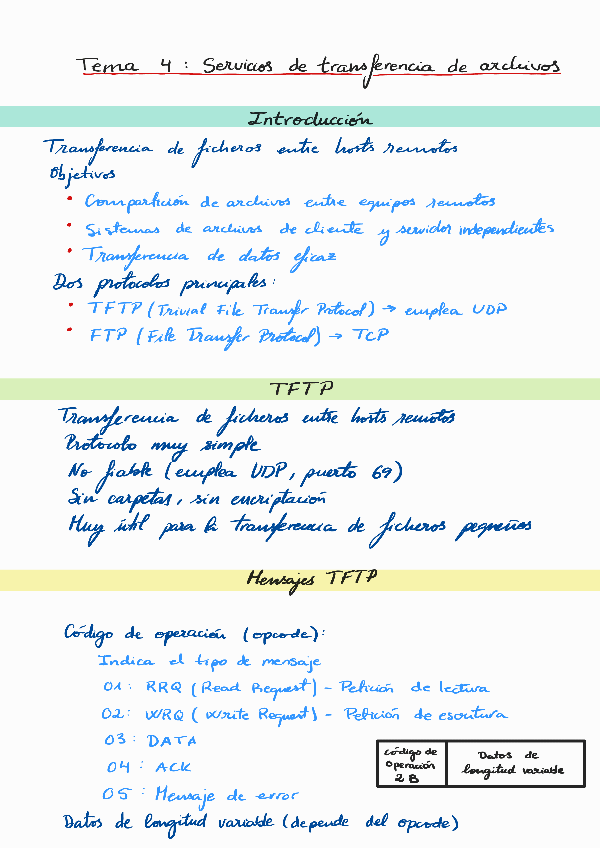 Tema 4: Servicios de transferencia de archivos
Introducción
Transferencia de ficheros entre hosts remotos
Objetivos
• Compartición de archivos entre equipos remotos
• Sistemas de archivos de cliente y servidor independientes
• Transferencia de datos eficaz
Dos protocolos principales:
• TFTP (Trivial File Transfer Protocol) → emplea UDP
• FTP (File Transfer Protocol) → TCP
TFTP
Transferencia de ficheros entre hosts remotos
Protocolo muy simple
No fiable (emplea UDP, puerto 69)
Sin carpetas, sin encriptación
Muy útil para la transferencia de ficheros pequeños
Mensajes TFTP
Código de operación (opcode):
Indica el tipo de mensaje
01: RRQ (Read Request) - Petición de lectura
02: WRQ (Write Request) - Petición de escritura
03: DATA
04: ACK
05: Mensaje de error
Código de operación 2 B
Datos de longitud variable
Datos de longitud variable (depende del opcode)